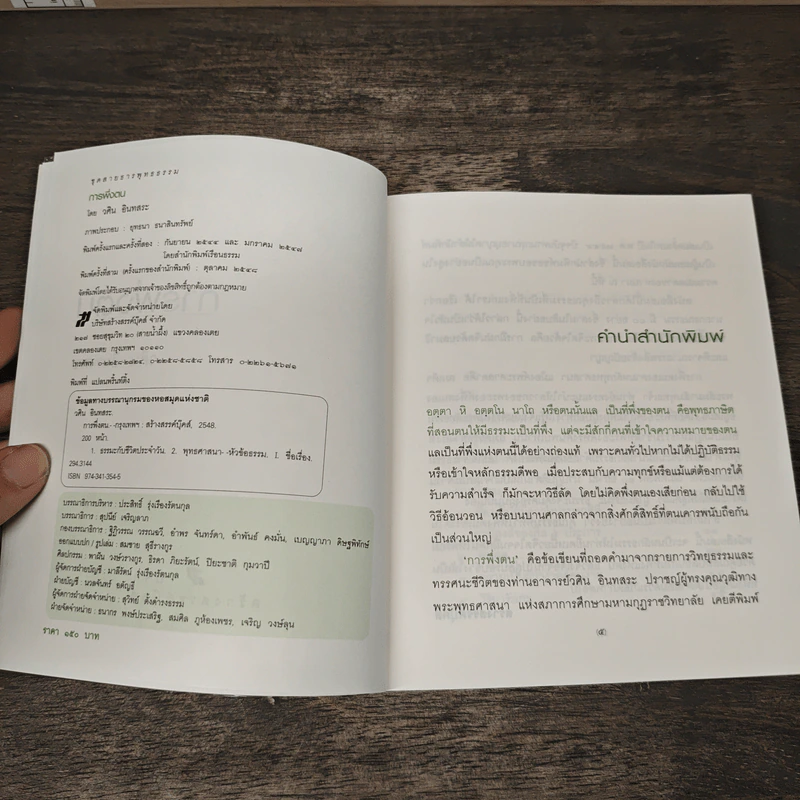 ชุดสายธารพุทธธรรม
การพึ่งตน
โดย วศิน อินทสระ
ภาพประกอบ : ยุทธนา ธนาสินทรัพย์
พิมพ์ครั้งแรกและครั้งที่สอง : กันยายน ๒๕๔๔ และ มกราคม ๒๕๔๗
โดยสำนักพิมพ์เรือนธรรม
พิมพ์ครั้งที่สาม (ครั้งแรกของสำนักพิมพ์) : ตุลาคม ๒๕๔๘
จัดพิมพ์โดยได้รับอนุญาตจากเจ้าของลิขสิทธิ์ถูกต้องตามกฎหมาย
จัดพิมพ์และจัดจำหน่ายโดย
บริษัทสร้างสรรค์บุ๊คส์ จำกัด
๒๑๙ ซอยสุขุมวิท ๒๐ (สายน้ำผึ้ง) แขวงคลองเตย
เขตคลองเตย กรุงเทพฯ ๑๐๑๑๐
โทรสาร ๐-๒๒๖๑-๕๖๗๑
พิมพ์ที่ แปลนพริ้นท์ติ้ง
ข้อมูลทางบรรณานุกรมของหอสมุดแห่งชาติ
วศิน อินทสระ.
การพึ่งตน.--กรุงเทพฯ : สร้างสรรค์บุ๊คส์, 2548.
200 หน้า.
1. ธรรมะกับชีวิตประจำวัน. 2. พุทธศาสนา--หัวข้อธรรม. I. ชื่อเรื่อง.
294.3144
ISBN 974-341-354-5
บรรณาธิการบริหาร : ประสิทธิ์ รุ่งเรืองรัตนกุล
บรรณาธิการ : สุปนีย์ เจริญลาภ
กองบรรณาธิการ : ฐิฏิวรรณ วรรณฉวี, อำพร จันทร์ดา, อำพันธ์ คงมั่น, เบญญาภา ดิษฐพิทักษ์
ออกแบบปก / รูปเล่ม : สมชาย สุธีรางกูร
ศิลปกรรม : พาฝัน วงษ์วรางกูร, ธิรดา ภิยะรัตน์, ปิยะชาติ กุมวาปี
ผู้จัดการฝ่ายบัญชี : มาลีรัตน์ รุ่งเรืองรัตนกุล
ฝ่ายบัญชี : นวลจันทร์ อดัญธี
ผู้จัดการฝ่ายจัดจำหน่าย : สุวิทย์ ตั้งดำรงธรรม
ฝ่ายจัดจำหน่าย : ธนากร พงษ์ประเสริฐ, สมศิล ภูห้องเพชร, เจริญ วงษ์ลุน
ราคา ๑๕๐ บาท
คำนำสำนักพิมพ์
อตฺตา หิ อตฺตโน นาโถ หรือตนนั้นแล เป็นที่พึ่งของตน คือพุทธภาษิต
ที่สอนตนให้มีธรรมะเป็นที่พึ่ง แต่จะมีสักกี่คนที่เข้าใจความหมายของตน
แลเป็นที่พึ่งแห่งตนนี้ได้อย่างถ่องแท้ เพราะคนทั่วไปหากไม่ได้ปฏิบัติธรรม
หรือเข้าใจหลักธรรมดีพอ เมื่อประสบกับความทุกข์หรือแม้แต่ต้องการได้
รับความสำเร็จ ก็มักจะหาวิธีลัด โดยไม่คิดพึ่งตนเองเสียก่อน กลับไปใช้
วิธีอ้อนวอน หรือบนบานศาลกล่าวจากสิ่งศักดิ์สิทธิ์ที่ตนเคารพนับถือกัน
เป็นส่วนใหญ่
'การพึ่งตน' คือข้อเขียนที่ถอดคำมาจากรายการวิทยุธรรมและ
ทรรศนะชีวิตของท่านอาจารย์วศิน อินทสระ ปราชญ์ผู้ทรงคุณวุฒิทาง
พระพุทธศาสนา แห่งสภาการศึกษามหามกุฏราชวิทยาลัย เคยตีพิมพ์
(๕)